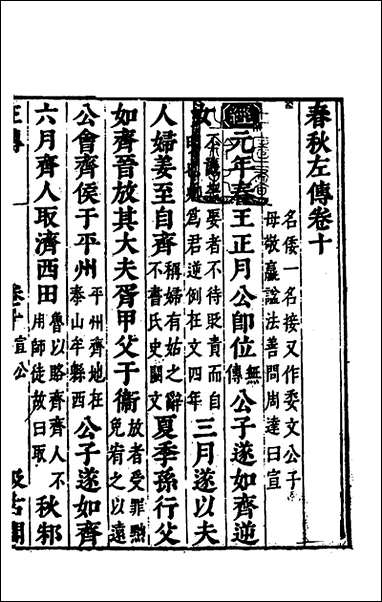 春秋左傳卷十
名倭一名接又作委文公子
母敬嬴諡法善問周達曰宣
經元年春王正月公卽位無傳公子遂如齊逆
女娶者不待貶責而自爲君逆例在文四年三月遂以夫
人婦姜至自齊稱婦有姑之辭不書氏史闕文夏季孫行父
如齊晉放其大夫胥甲父于衞放者受罪黜免宥之以遠
公會齊侯于平州平州齊地在泰山牟縣西公子遂如齊
六月齊人取濟西田魯以賂齊齊人不用師徒故曰取秋邾
左傳 卷十 宣公 汲古閣